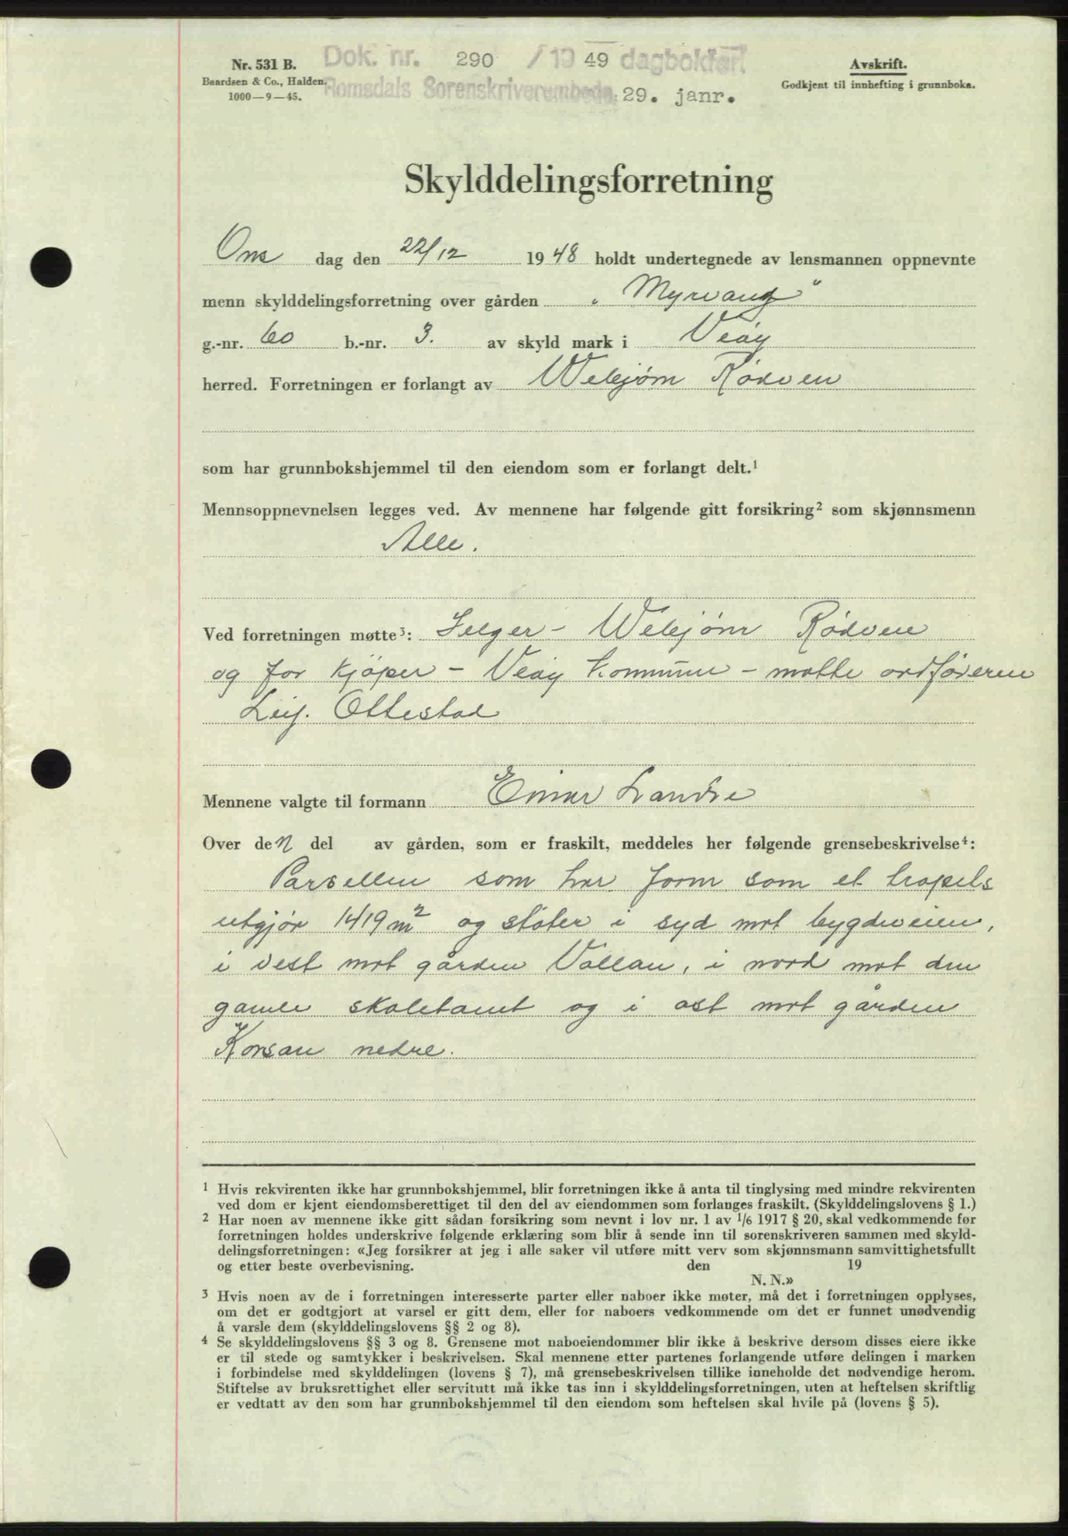 Nr. 531 B.
Baardsen & Co., Halden.
1000—9—45.
Dok. nr. 290 / 19 49 dagbokført
Romsdals Sorenskriverembede 29. janr.
Avskrift.
Godkjent til innhefting i grunnboka.
Skylddelingsforretning
Ons dag den 22/12 1948 holdt undertegnede av lensmannen oppnevnte
menn skylddelingsforretning over gården „ Myrvang "
g.-nr. 60 b.-nr. 3. av skyld mark i Veøy
herred. Forretningen er forlangt av Webjørn Rødven
som har grunnbokshjemmel til den eiendom som er forlangt delt.¹
Mennsoppnevnelsen legges ved. Av mennene har følgende gitt forsikring² som skjønnsmenn
Alle.
Ved forretningen møtte³: Selger - Webjørn Rødven
og for kjøper - Veøy kommune - møtte ordføreren
Leif. Ottestad
Mennene valgte til formann Einar Landre
Over den del av gården, som er fraskilt, meddeles her følgende grensebeskrivelse⁴:
Parsellen som har form som et trapels
utgjør 1419 m² og støter i syd mot bygdeveien,
i vest mot gården Vollan, i nord mot den
gamle skoletomt og i øst mot gården
Korsan nedre.
¹ Hvis rekvirenten ikke har grunnbokshjemmel, blir forretningen ikke å anta til tinglysing med mindre rekvirenten
ved dom er kjent eiendomsberettiget til den del av eiendommen som forlanges fraskilt. (Skylddelingslovens § 1.)
² Har noen av mennene ikke gitt sådan forsikring som nevnt i lov nr. 1 av 1/6 1917 § 20, skal vedkommende før
forretningen holdes underskrive følgende erklæring som blir å sende inn til sorenskriveren sammen med skyld-
delingsforretningen: «Jeg forsikrer at jeg i alle saker vil utføre mitt verv som skjønnsmann samvittighetsfullt
og etter beste overbevisning. den 19
N. N.»
³ Hvis noen av de i forretningen interesserte parter eller naboer ikke møter, må det i forretningen opplyses,
om det er godtgjort at varsel er gitt dem, eller for naboers vedkommende om det er funnet unødvendig
å varsle dem (skylddelingslovens §§ 2 og 8).
⁴ Se skylddelingslovens §§ 3 og 8. Grensene mot naboeiendommer blir ikke å beskrive dersom disses eiere ikke
er til stede og samtykker i beskrivelsen. Skal mennene etter partenes forlangende utføre delingen i marken
i forbindelse med skylddelingen (lovens § 7), må grensebeskrivelsen tillike inneholde det nødvendige herom.
Stiftelse av bruksrettighet eller servitutt må ikke tas inn i skylddelingsforretningen, uten at heftelsen skriftlig
er vedtatt av den som har grunnbokshjemmel til den eiendom som heftelsen skal hvile på (lovens § 5).